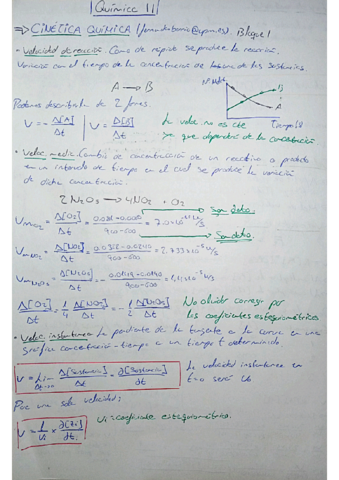 Química II
⇒ CINÉTICA QUÍMICA Bloque 1
· Velocidad de reacción. Como de rápido se produce la reacción.
Variación con el tiempo de la concentración de las sustancias.
A → B
Nº Moléc
A
B
Tiempo (s)
Podemos describirla de 2 formas.
V = - Δ[A]/Δt | V = Δ[B]/Δt
La veloc. no es cte
ya que depende de la concentración
· Veloc. media. Cambio de concentración de un reactivo o producto
en un intervalo de tiempo en el cual se produce la variación
de dicha concentración.
2N₂O₅ → 4NO₂ + O₂
Δ[O₂]/Δt
Son datos
900-600
Δ[NO₂]/Δt
Son datos
900-600
Δ[N₂O₅]/Δt
900-600
Δ[O₂]/Δt = 1/4 Δ[NO₂]/Δt = - 1/2 Δ[N₂O₅]/Δt
No olvidar corregir por
los coeficientes estequiométricos
· Veloc. instantanea. La pendiente de la tangente a la curva en una
grafica concentración-tiempo a un tiempo t determinado.
V = Lim Δt→0 Δ[Sustancia]/Δt = ∂[Sustancia]/∂t
La velocidad instantanea en
t=0 será V₀
Para una sola velocidad:
∂t
coeficiente estequiométrico.